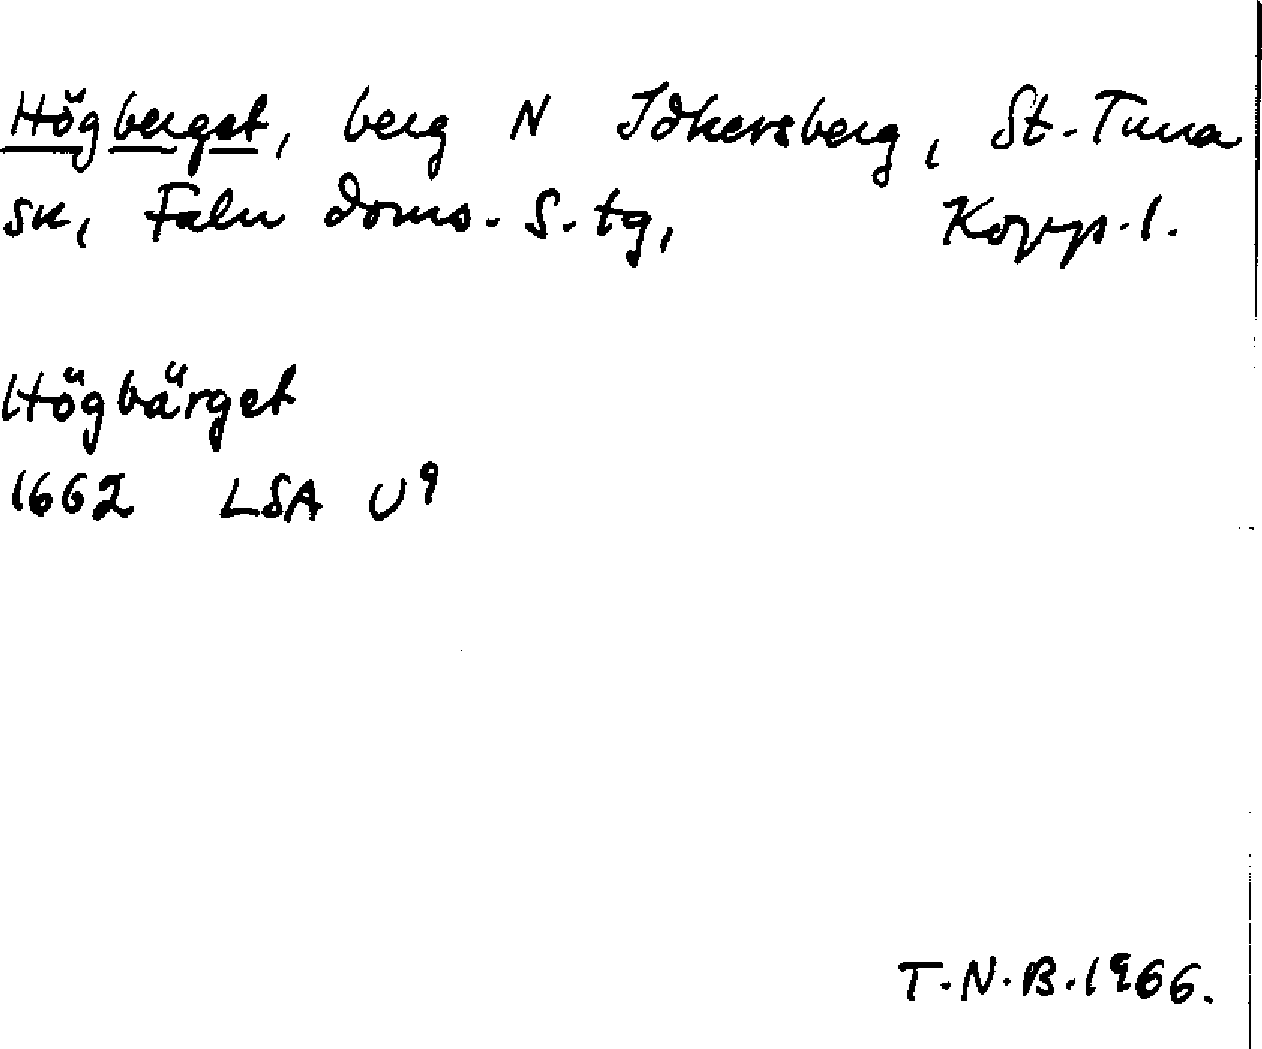 Högberget, berg N Idkersberg, St. Tuna
sn, Falu doms. S. tg, Kopp. l.
Högbärget
1662 LSA U9
T.N.B. 1966.